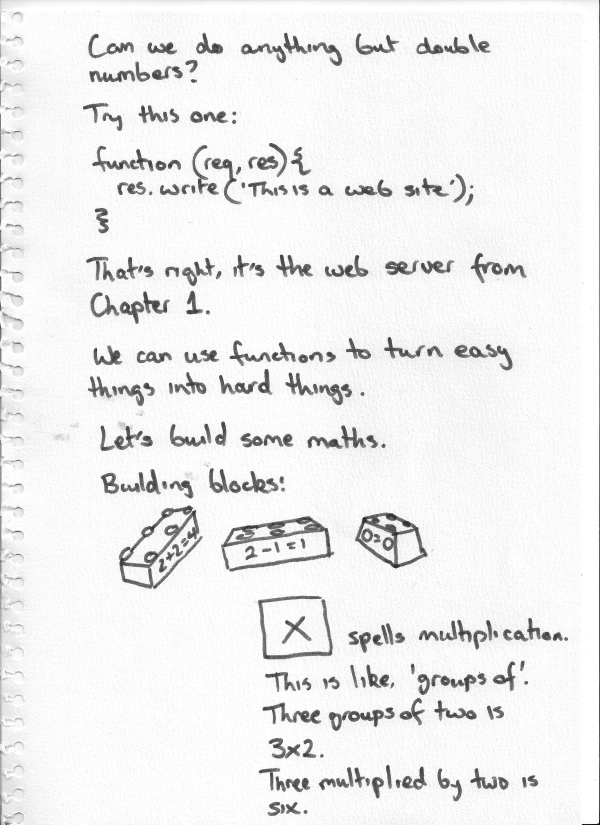 Can we do anything but double
numbers?
Try this one:
function (req, res) {
res.write('This is a web site');
}
That's right, it's the web server from
Chapter 1.
We can use functions to turn easy
things into hard things.
Let's build some maths.
Building blocks!
2+2=4
2-1=1
0=0
X
spells multiplication.
This is like, 'groups of'.
Three groups of two is
3x2.
Three multiplied by two is
six.